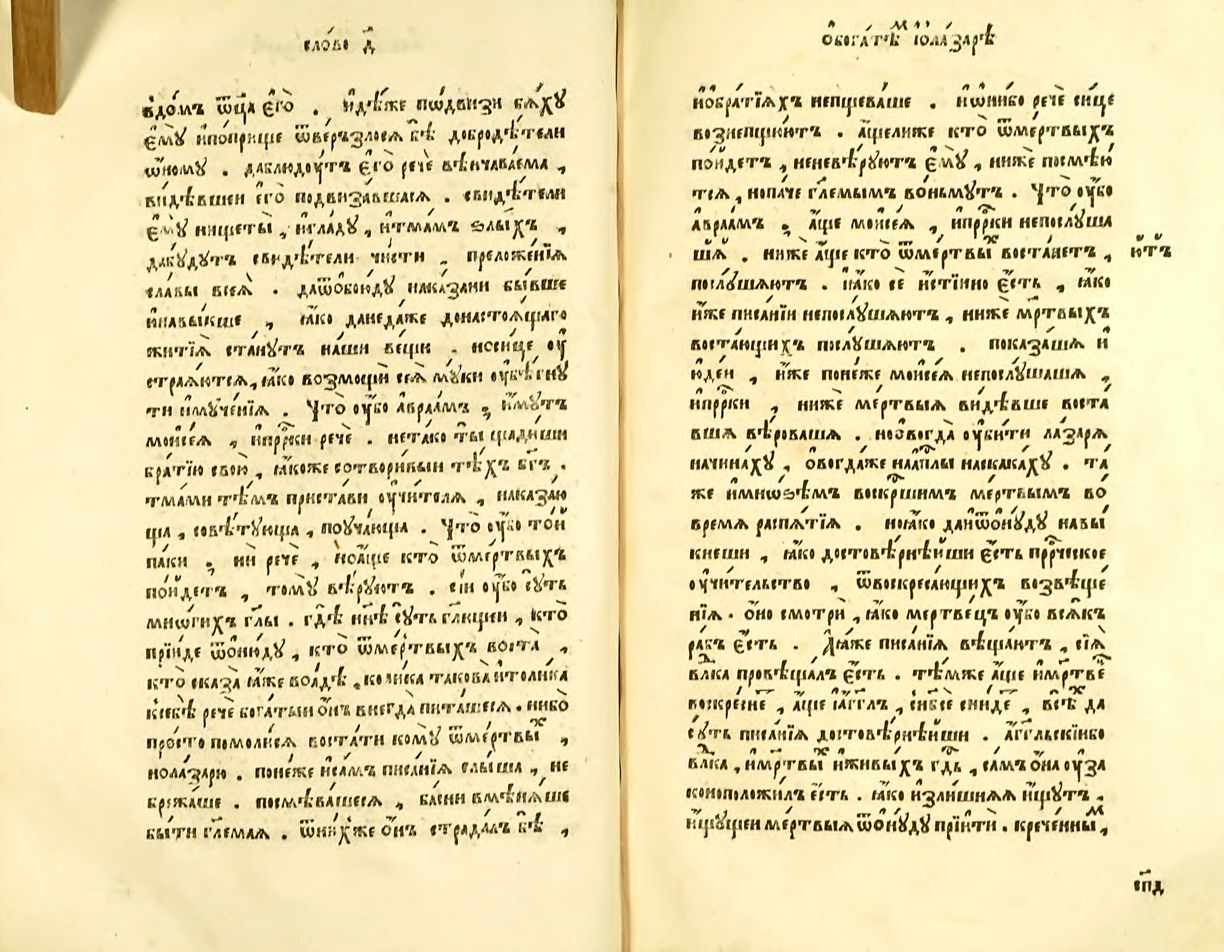 сло́во д҃
в̾до́мъ ѿц҃а є҆го̀ . и҆дѣ́же по́двизи бѧ́хꙋ
є҆мꙋ̀ и҆попри́ще ѿве́рзлосѧ бѣ̀ добродѣ́тели
ѡ҆́номꙋ . даблюдꙋ́тъ є҆го̀ речѐ вѣнчава́ема ,
ви́дѣвшеи є҆го̀ подвиза́вшасѧ . свидѣ́тели
є҆мꙋ̀ нищеты̀ , и҆гла́дꙋ , и҆тма́мъ ѕлы́хъ ,
дабꙋ́дꙋтъ свидѣ́тели че́сти , преложе́нїѧ
сла́вы всеѧ̀ . даѿѻбою́дꙋ нака́зани бы́вше
и҆навы́кше , ꙗ҆́ко данеда́же донастоѧ́щаго
житїѧ̀ ста́нꙋтъ на́ши ве́щи , носи́це ᲂу҆
страѧ́ютсѧ, ꙗ҆́ко возмощѝ сеѧ̀ мꙋ́ки ᲂу҆бѣ́гнꙋ
ти и҆мꙋче́нїѧ . Что̀ ᲂу҆́бо а҆враа́мъ , и҆́мꙋтъ
моѷсе́ѧ , и҆прⷪ҇ро́ки речѐ . нета́ко ты̀ щади́ши
бра́тїю свою̀ , ꙗ҆́коже сотвори́выи тѣ́хъ бг҃ъ .
тма́ми тѣ́мъ приста́ви ᲂу҆чи́телѧ , наказа́ю
ща , совѣ́тꙋюща , поꙋча́юща . Что̀ ᲂу҆́бо то́и
па́ки , нѝ речѐ , но а҆́ще кто̀ ѿме́ртвыхъ
по́идетъ , томꙋ̀ вѣ́рꙋютъ . сїѝ ᲂу҆́бо сꙋ́ть
мно́гихъ гл҃ы . гдѣ̀ нн҃ѣ сꙋ́ть гл҃ющеи , кто̀
прїи́де ѿо́нюдꙋ , кто̀ ѿме́ртвыхъ воста̀ ,
кто̀ сказа̀ ꙗ҆́же воа́дѣ , коли́ка такова̀ и҆толи́ка
ксебѣ̀ речѐ бога́тыи ѻ҆́нъ внегда̀ пита́шесѧ . нибо
про́сто помоли́сѧ воста́ти комꙋ̀ ѿме́ртвыⷯ ,
нола́зарю . поне́же и҆са́мъ писа́нїѧ слы́ша , не
брежа́ше . посмѣва́шесѧ , ба́сни вмѣнѧ́ше
бы́ти гл҃емаѧ . ѿни́хже ѻ҆́нъ страда́лъ бѣ̀ ,
ѻ҆бога́тѣⷨ и҆ѻла́зарѣ
и҆ѻбра́тїѧхъ непщева́ше . и҆ѡ҆ни́бо речѐ си́це
вознепщꙋ́ютъ . а҆́щелиже кто̀ ѿме́ртвыхъ
по́идетъ , неневѣ́рꙋютъ є҆мꙋ̀ , нижѐ посмѣю́
тсѧ , нопа́че гл҃емымъ во́ньмꙋтъ . Что̀ ᲂу҆́бо
а҆враа́мъ , а҆́ще моѷсе́ѧ , и҆прⷪ҇ро́ки непослꙋ́ша
ша . нижѐ а҆́ще кто̀ ѿме́ртвыⷯ воста́нетъ , и҆́тъ
послꙋ́шаютъ . ꙗ҆́ко сѐ и҆́стинно є҆́сть , ꙗ҆́ко
и҆́же писа́нїи непослꙋ́шаютъ , нижѐ мр҃твыхъ
востаю́щихъ послꙋ́шаютъ . показа́ша и҆
ю҆де́и , и҆́же поне́же моѷсе́ѧ непослꙋ́шаша ,
и҆прⷪ҇ро́ки , нижѐ ме́ртвыѧ ви́дѣвше воста́
вша вѣ́роваша . ноѻвогда̀ ᲂу҆би́ти ла́зарѧ
начина́хꙋ , ѻ҆вогда́же наа҆пⷭ҇лы наскака́хꙋ . та́
же и҆мно́ѕѣмъ воскр҃шимъ ме́ртвымъ во́
вре́мѧ распѧ́тїѧ . ноꙗ҆́ко даиѿѻнꙋ́дꙋ навы́
кнеши , ꙗ҆́ко достовѣ́рнѣиши є҆́сть прⷪ҇ро́ческое
ᲂу҆чи́тельство , ѿвоскреса́ющихъ возвѣще́
нїѧ . ѻ҆́но смотрѝ , ꙗ҆́ко мертве́цъ ᲂу҆́бо всѧ́къ
ра́бъ є҆́сть . А҆ꙗ҆́же писа́нїѧ вѣща́ютъ , сїѧ̀
влⷣка провѣща́лъ є҆́сть . тѣ́мже а҆́ще и҆мр҃тве
воскре́сне , а҆́ще і҆а҆́гг҃лъ , с̾нб҃се сни́де , всѣⷯ да
сꙋ́ть писа́нїѧ достовѣ́рнѣиши . а҆́гг҃льскїибо
влⷣка , и҆мр҃твыⷯ и҆живы́хъ гдⷭ҇ь , са́мъ ѻ҆на̀ ᲂу҆за
коноположи́лъ є҆́сть . ꙗ҆́ко и҆зли́шнѧѧ и҆́щꙋтъ .
и҆́щꙋщеи ме́ртвыѧ ѿо́нꙋдꙋ прїитѝ . крече́нныⷨ ,
сп҃д